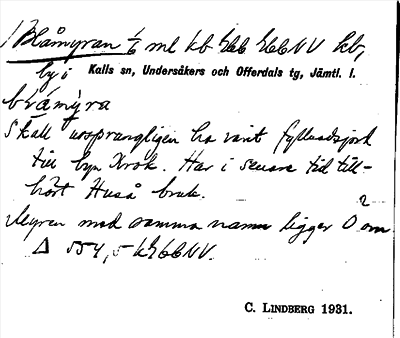 1 Blåmyran 1/6 ml kb Häb HäbNV kb,
by i Kalls sn, Undersåkers och Offerdals tg, Jämtl. l.
blåmyra
Skall ursprungligen ha varit fyllnadsjord
till byn Krok. Har i senare tid till-
hört Huså bruk.
Myren med samma namn ligger O om
Δ 554,5
C. LINDBERG 1931.